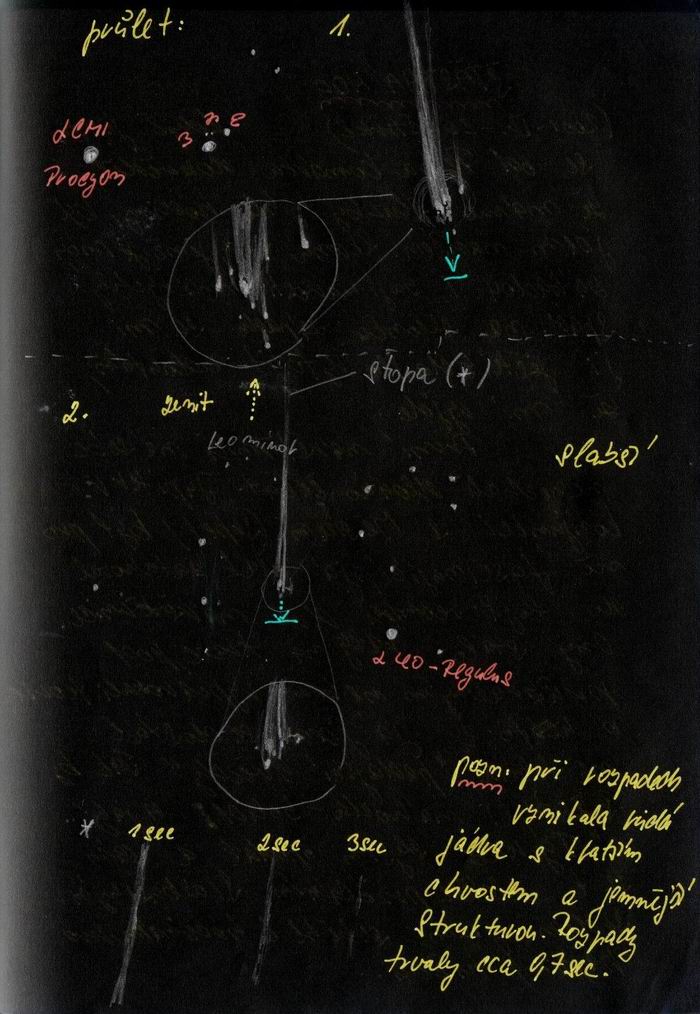 průlet: 1.
α CMi
Procyon
β η ε
stopa (*)
2. zenit
Leo minor
slabší
α Leo - Regulus
pozn. při rozpadech
vznikala
jádra s kratším
chvostem a jemnější
strukturou. Rozpady
trvaly cca 0,7 sec.
* 1 sec 2 sec 3 sec